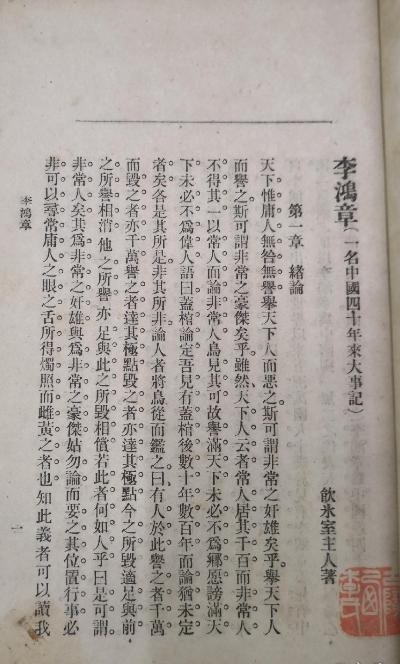 李鴻章（一名中國四十年來大事記）
飲氷室主人著
第一章　緒論
天下惟庸人無咎無譽舉天下人而惡之斯可謂非常之奸雄矣乎舉天下人
而譽之斯可謂非常之豪傑矣乎雖然天下人云者常人居其千百而非常人
不得其一以常人而論非常人烏見其可故譽滿天下未必不爲鄉愿謗滿天
下未必不爲偉人語曰蓋棺論定吾見有蓋棺後數十年數百年而論猶未定
者矣各是其所是非其所非論人者將烏從而鑑之曰有人於此譽之者千萬
而毀之者亦千萬譽之者達其極點毀之者亦達其極點今之所毀適足與前
之所譽相消他之所譽亦足與此之所毀相償若此者何如人乎曰是可謂
非常人矣其爲非常之奸雄與爲非常之豪傑姑勿論而要之其位置行事必
非可以尋常庸人之眼之舌所得燭照而雌黃之者也知此義者可以讀我
李鴻章
一